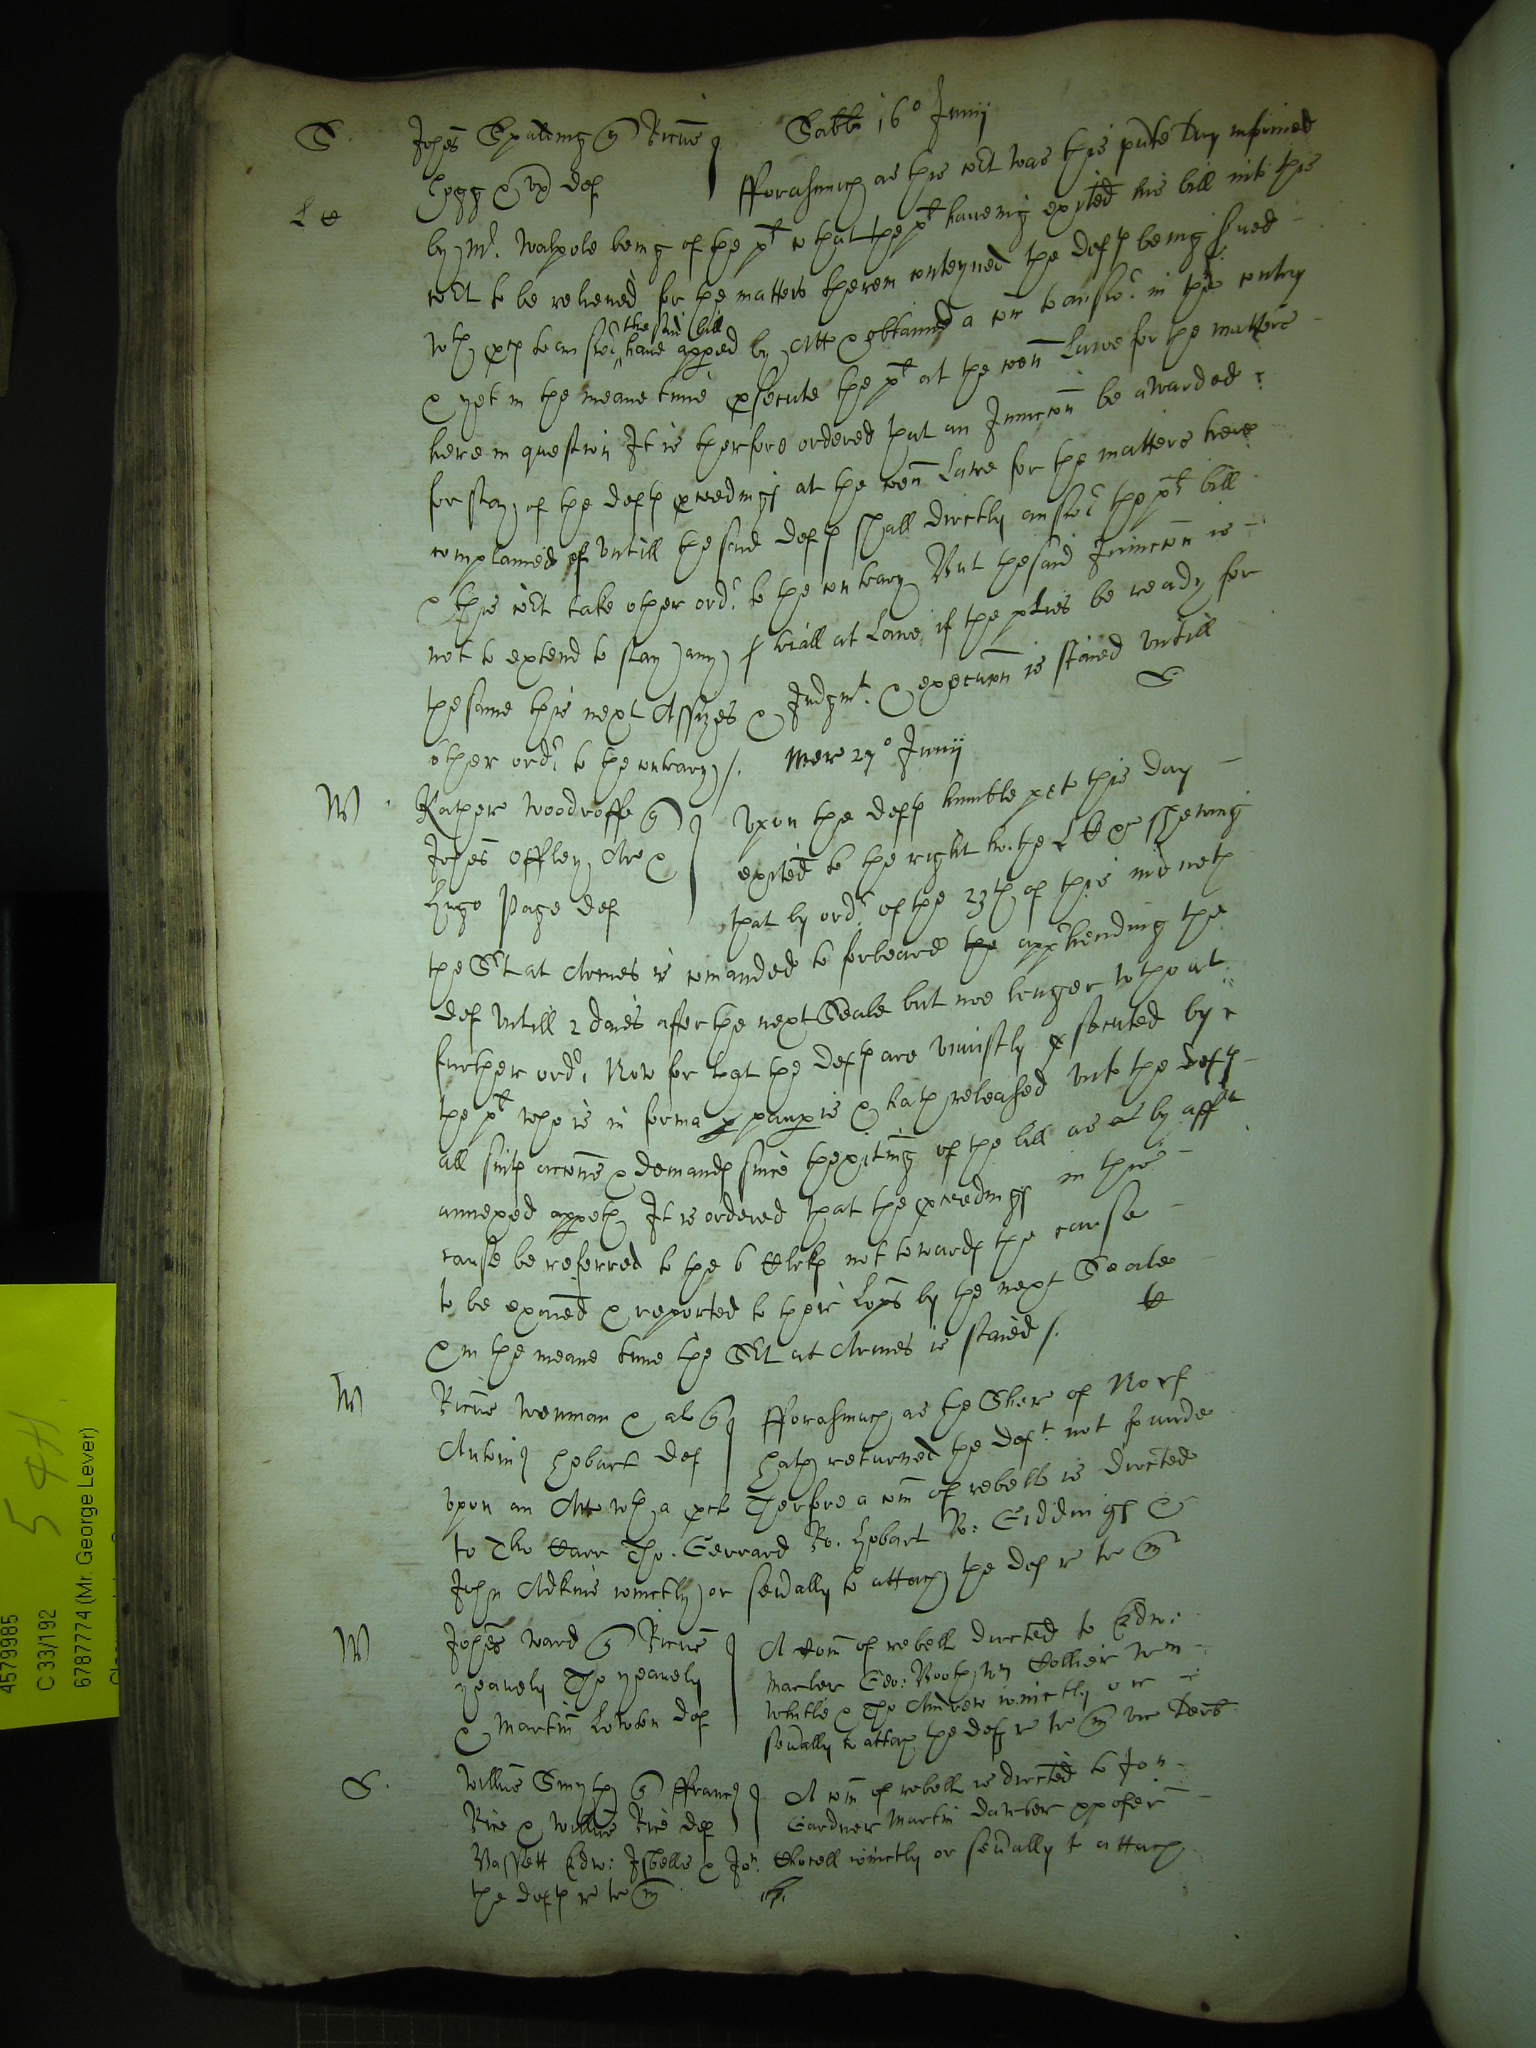 S. Johes Spalding q Ricus Sabti 16° Junii
Hogg & ux def fforasmuch as this co:t was this pnte day informed
Le
by Mr. Walpole being of the pt c that the pt haveing exhited his bill into this
co:t to be releived for the matters therein conteyned the deft being served
wth pces to answer the said bill have appred by Att & obtained a com to answer in the contry
& yet in the meane time psecute the pt at the comn Lawe for the matters
here in question It is therfore ordered that an Iniuncon be awarded
for stay of the defts pceedings at the comn Lawe for the matters here
complained of untill the said defts shall directly answer the pts bill
& this co:t take other order to the contrary But the said Iniuncon is
not to extend to stay any triall at Lawe if the pties be ready for
the same this next Assizes & Judgmt. & execucon is staied untill
other order to the contrary /. S
Mer 27° Junii
W Woodroffe q Upon the defts humble petn this day
Johes Offley Are & exhited to the right ho: the L shewing
Hugo Page def that by order of the 23th of this moneth
the St at Armes is comanded to forbeare the apprhending the
def untill 2 daies after the next Seale but noe longer without
further order. Now for that the defts are uniustly psecuted by
the pt who is in forma pauperis & hath released unto the defts
all suits accons & demands since thexhiting of the bill as by afft
annexed appeth It is ordered that the pceedings in this
cause be referred to the 6 Clrks not towards the cause
to be exaied & reported to their Lops by the next Seale
& in the meane time the St at Armes is staied /.
W Ricus Wenman & al q fforasmuch as the Shere of Norf
Hobart def hath returned the deft. not founde
upon an Att wth a pcl Therfore a com of rebell is directed
to Tho Carr Tho. Gerrard Ro. Hobart Ro: Giddings &
John Adkins coinctly or sevally to attach the def
W Johes Ward q Ricus A com of rebell directed to Edw:
Yeavely Tho Yeavely Geo: Booth Wm Collier Wm
& Martin def Whitle & Tho Andrew coinctly or
sevally to attach the def
S. Willus Smyth q ffranc A com of rebell is directed to Jon
Rice & Willus Rice def Gardner Martin
Bassett Edw: Isbells & Jon. coinctly or sevally to attach
the defts
4579985
C 33/192
6787774 (Mr. George Lever)